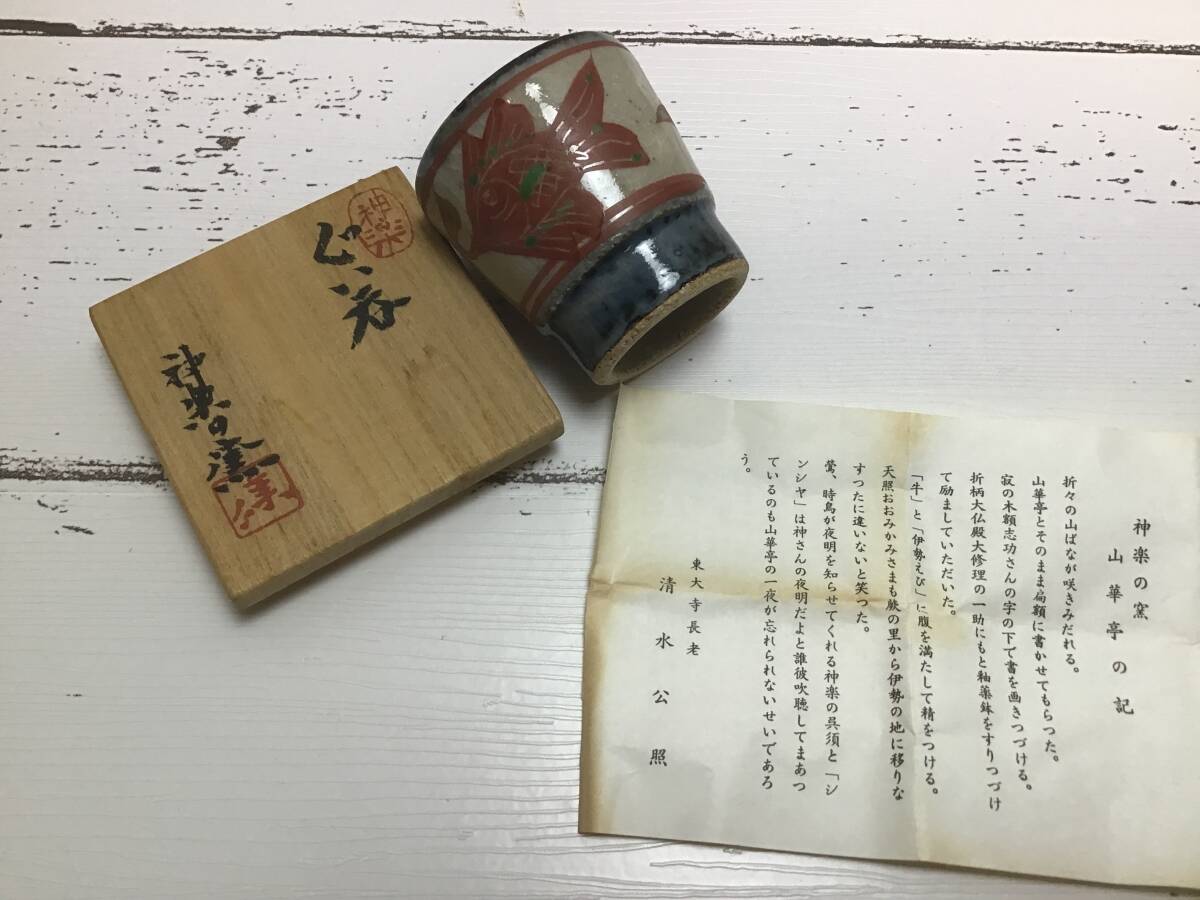 神楽
ぐい呑
神楽の窯
神楽の窯
山華亭の記
折々の山ばなが咲きみだれる。
山華亭とそのまま扁額に書かせてもらった。
寂の木額志功さんの字の下で書を画きつづける。
折柄大仏殿大修理の一助にもと釉薬鉢をすりつづけ
て励ましていただいた。
「牛」と「伊勢えび」に腹を満たして精をつける。
天照おおみかみさまも鄙の里から伊勢の地に移りな
すつたに違いないと笑った。
鶯、時鳥が夜明を知らせてくれる神楽の呉須と「シ
ンシヤ」は神さんの夜明だよと誰彼吹聴してまあつ
ているのも山華亭の一夜が忘れられないせいであろ
う。
東大寺長老
清水公照